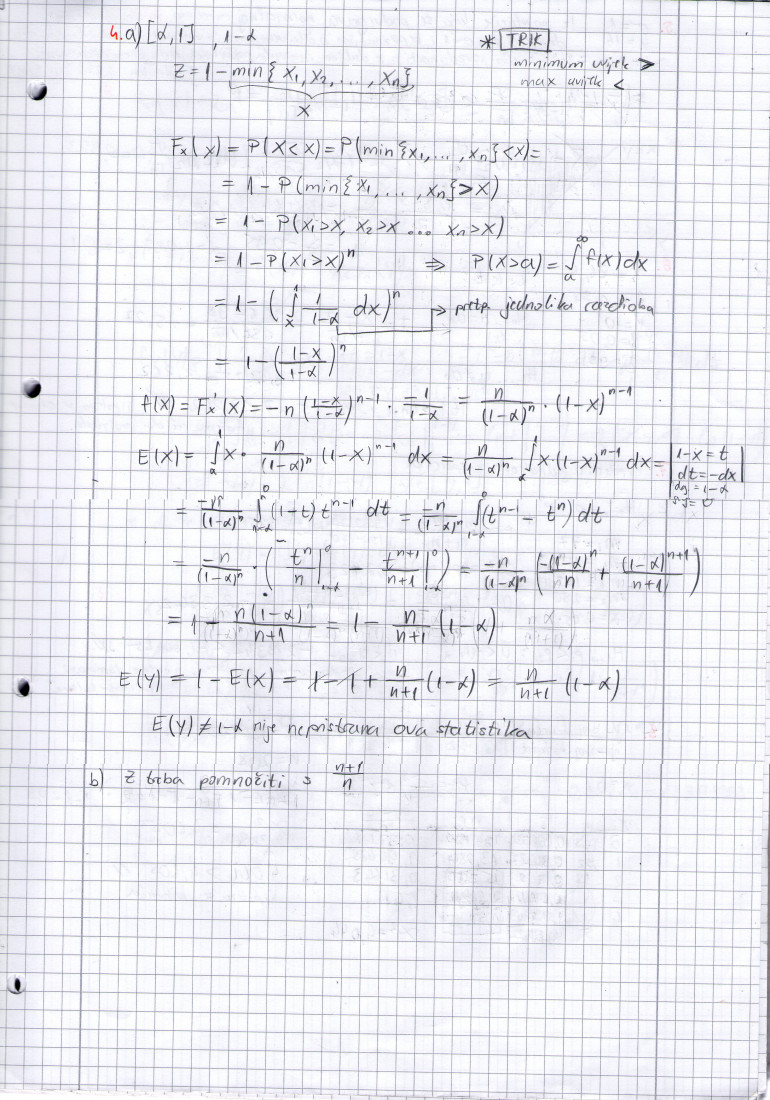 4. a) [α,1] , 1-α
* TRIK
minimum uvijek >
max uvijek <
Z = 1 - min{ X₁, X₂, ..., Xₙ }
X
Fₓ(x) = P(X<x) = P(min{x₁, ..., xₙ}<x) =
= 1 - P(min{x₁, ..., xₙ}>x)
= 1 - P(x₁>x, x₂>x ... xₙ>x)
= 1 - P(x₁>x)ⁿ ⇒ P(X>a) = ∫ₐ^∞ f(x)dx
= 1 - (∫ₓ¹ 1/(1-α) dx)ⁿ → pretp. jednolika razdioba
= 1 - ((1-x)/(1-α))ⁿ
f(x) = Fₓ'(x) = -n ((1-x)/(1-α))ⁿ⁻¹ · (-1)/(1-α) = n/(1-α)ⁿ · (1-x)ⁿ⁻¹
E(X) = ∫_α^1 x · n/(1-α)ⁿ (1-x)ⁿ⁻¹ dx = n/(1-α)ⁿ ∫_α^1 x·(1-x)ⁿ⁻¹ dx = | 1-x=t
dt=-dx
= -n/(1-α)ⁿ ∫_{1-α}^0 (1-t) tⁿ⁻¹ dt = -n/(1-α)ⁿ ∫_{1-α}^0 (tⁿ⁻¹ - tⁿ) dt
= -n/(1-α)ⁿ · ( tⁿ/n |_{1-α}^0 - tⁿ⁺¹/(n+1) |_{1-α}^0 ) = -n/(1-α)ⁿ ( -(1-α)ⁿ/n + (1-α)ⁿ⁺¹/(n+1) )
= 1 - n(1-α)/(n+1) = 1 - n/(n+1) (1-α)
E(Y) = 1 - E(X) = 1 - 1 + n/(n+1) (1-α) = n/(n+1) (1-α)
E(Y) ≠ 1-α nije nepristrana ova statistika
b) Z treba pomnožiti s (n+1)/n